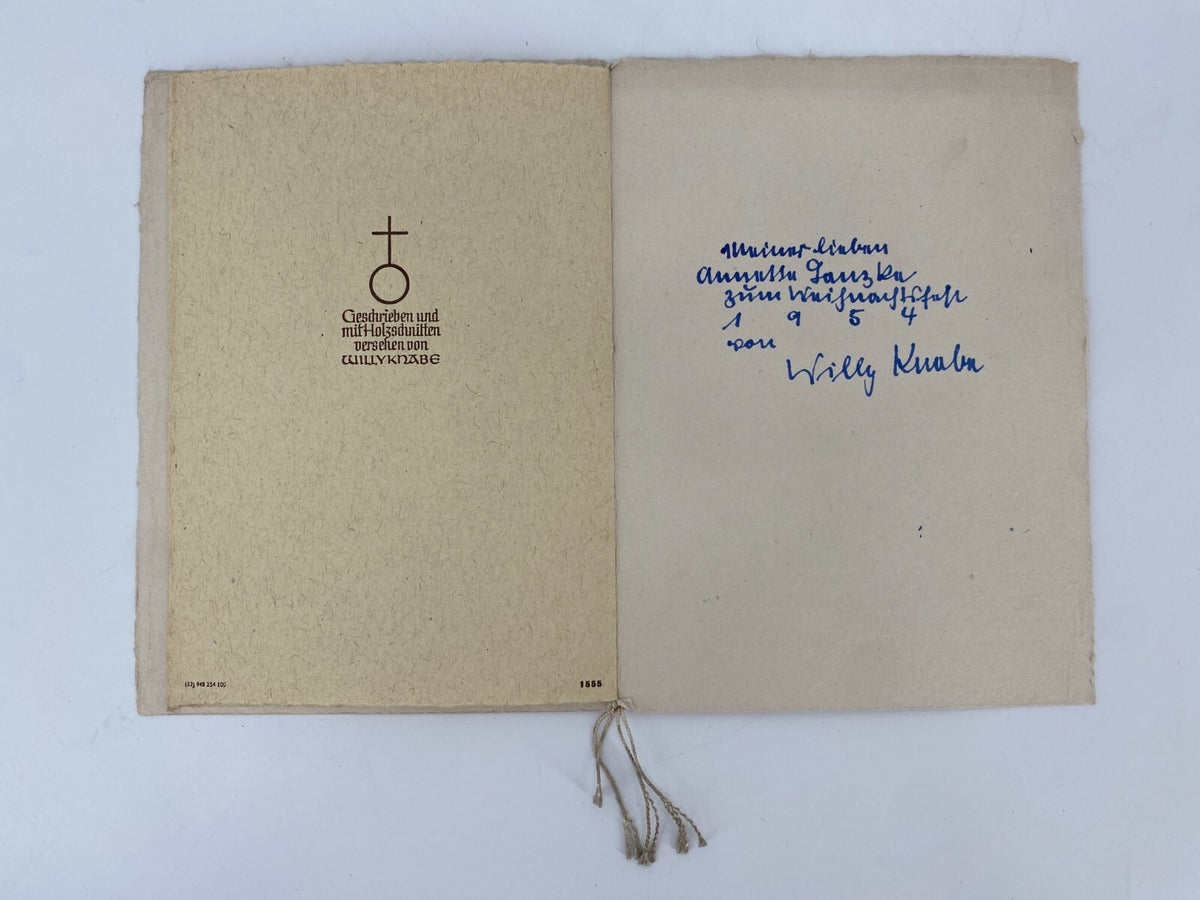 Geschrieben und
mit Holzschnitten
versehen von
WILLY KNABE
(22) 948 254 100
1555
Meiner lieben
Annette
zum Weihnachtsfest
1 9 5 4
von
Willy Knabe